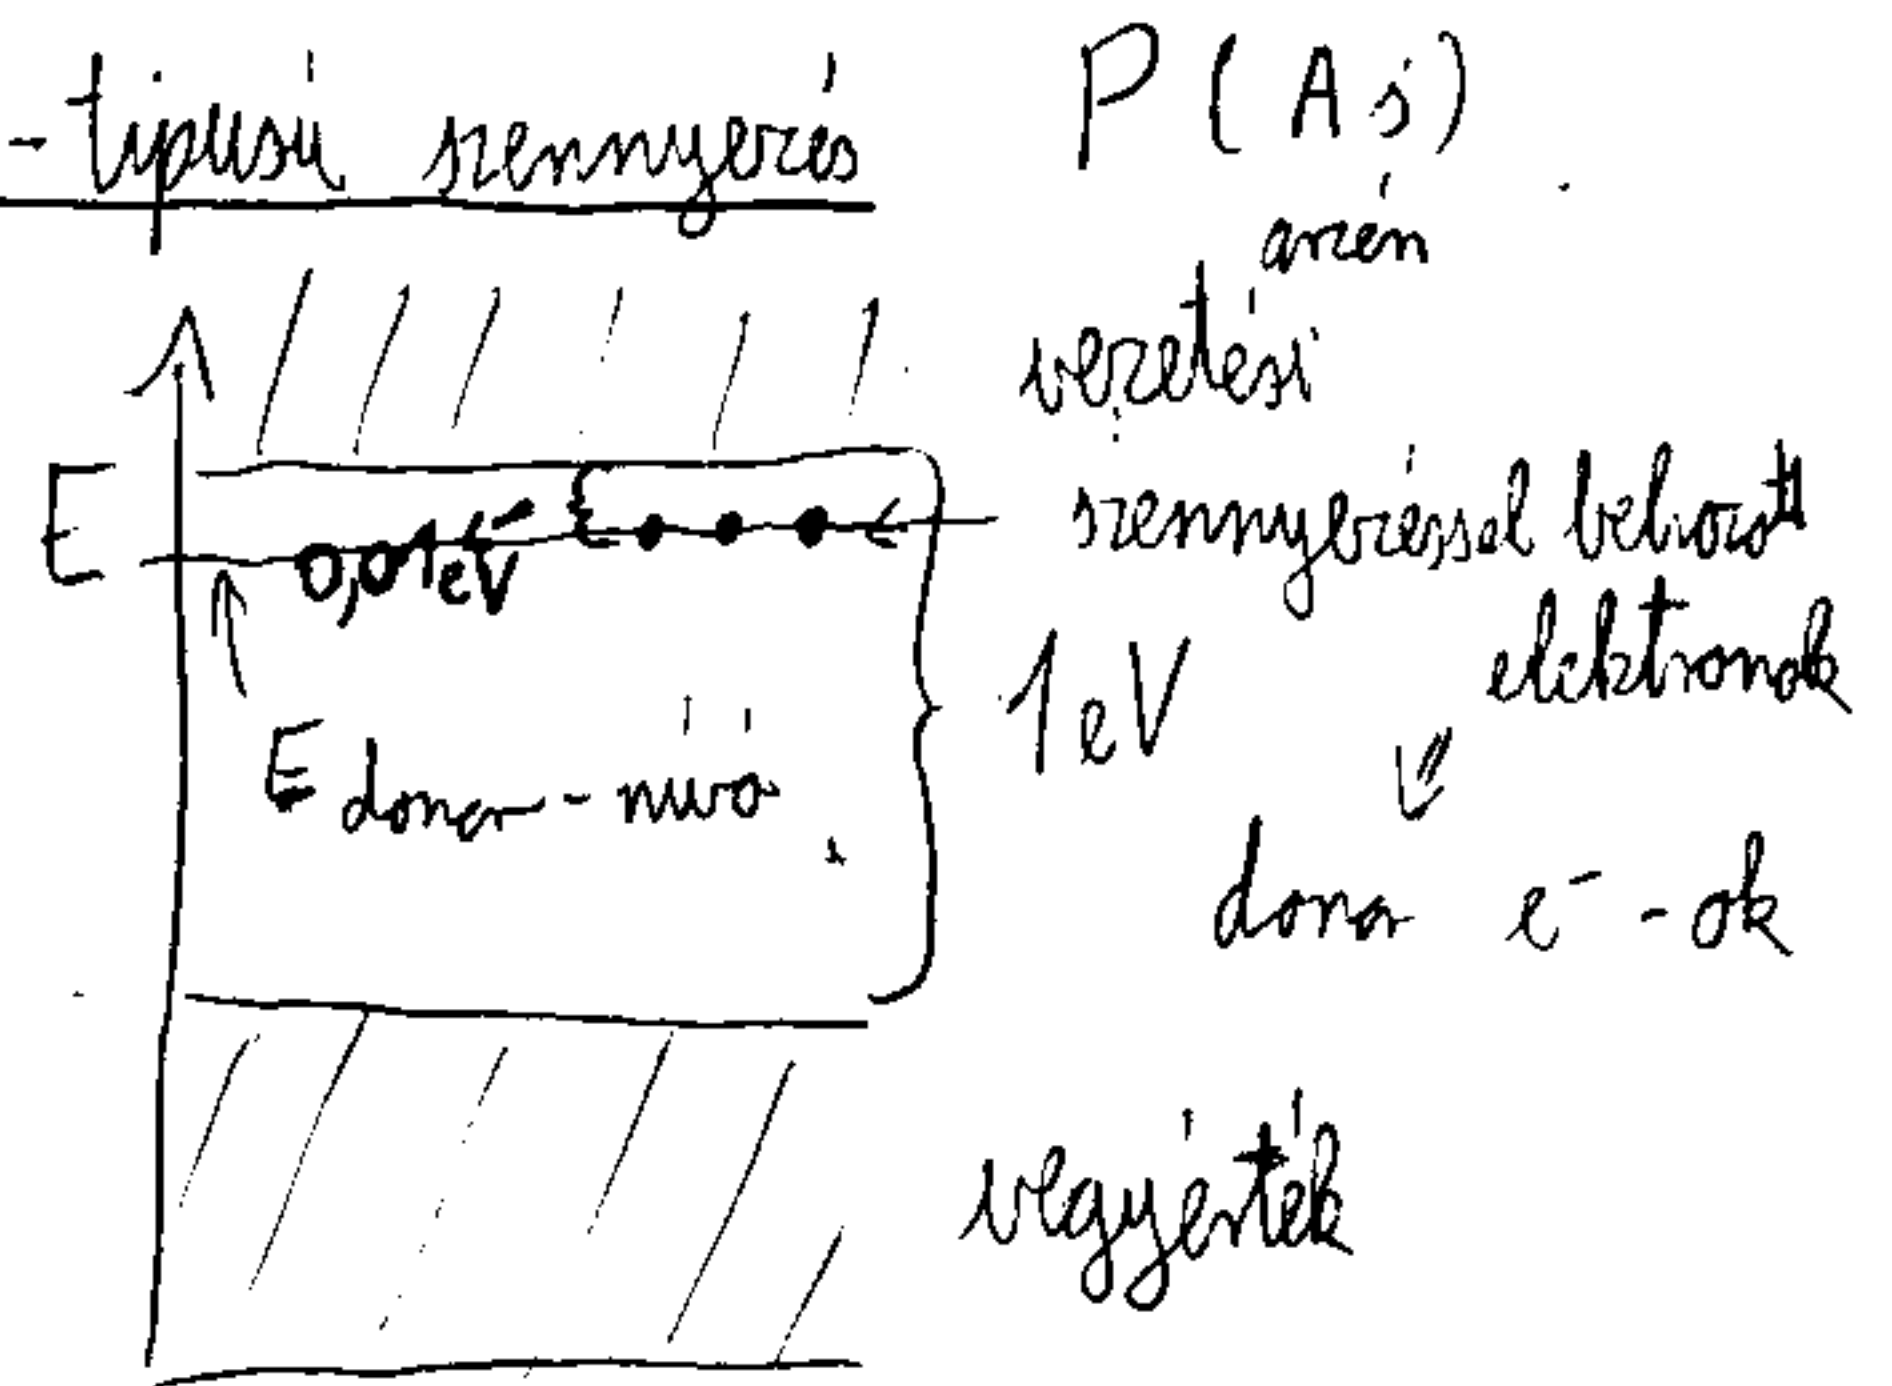 -tipusú szennyezés
P (As)
arzén
vezetési
E
0,01 eV
szennyezéssel behozott
elektronok
1 eV
E donor-nívó
donor e⁻-ok
vegyérték